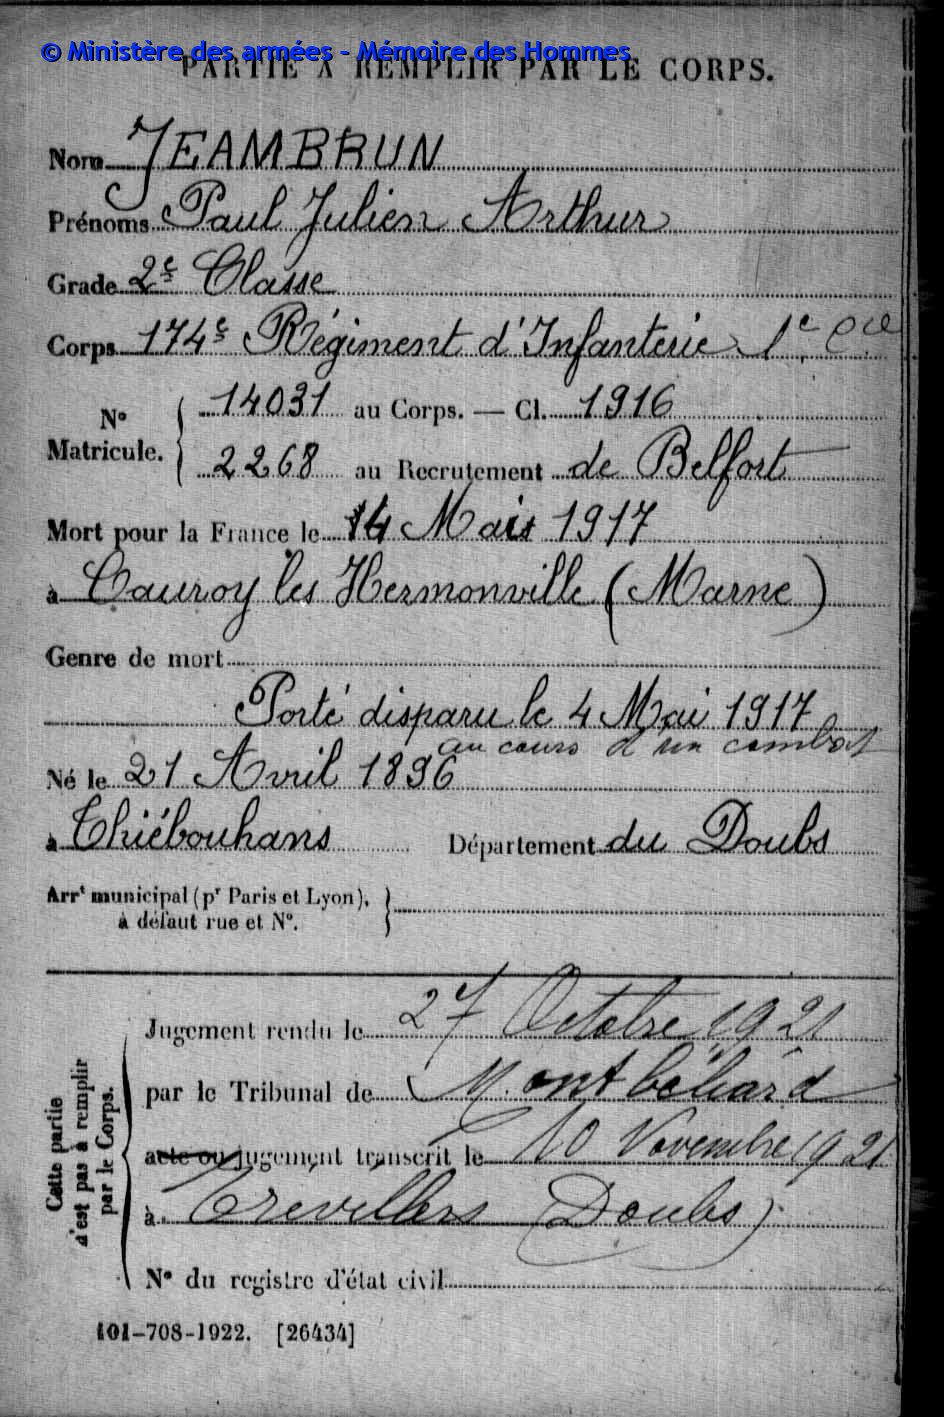 © Ministère des armées - Mémoire des Hommes
PARTIE À REMPLIR PAR LE CORPS.
Nom JEAMBRUN
Prénoms Paul Julien Arthur
Grade 2e Classe
Corps 174e Régiment d'Infanterie 1e Cie
N° Matricule. { 14031 au Corps. — Cl. 1916
2268 au Recrutement de Belfort
Mort pour la France le 14 Mai 1917
à Cauroy les Hermonville (Marne)
Genre de mort
Porté disparu le 4 Mai 1917
au cours d'un combat
Né le 21 Avril 1896
à Thiébouhans Département du Doubs
Arrt municipal (pr Paris et Lyon),
à défaut rue et N°.
Cette partie
n'est pas à remplir
par le Corps.
Jugement rendu le 27 Octobre 1921
par le Tribunal de Montbéliard
acte ou jugement transcrit le 10 Novembre 1921
à Trévillers (Doubs)
N° du registre d'état civil
101-708-1922. [26434]